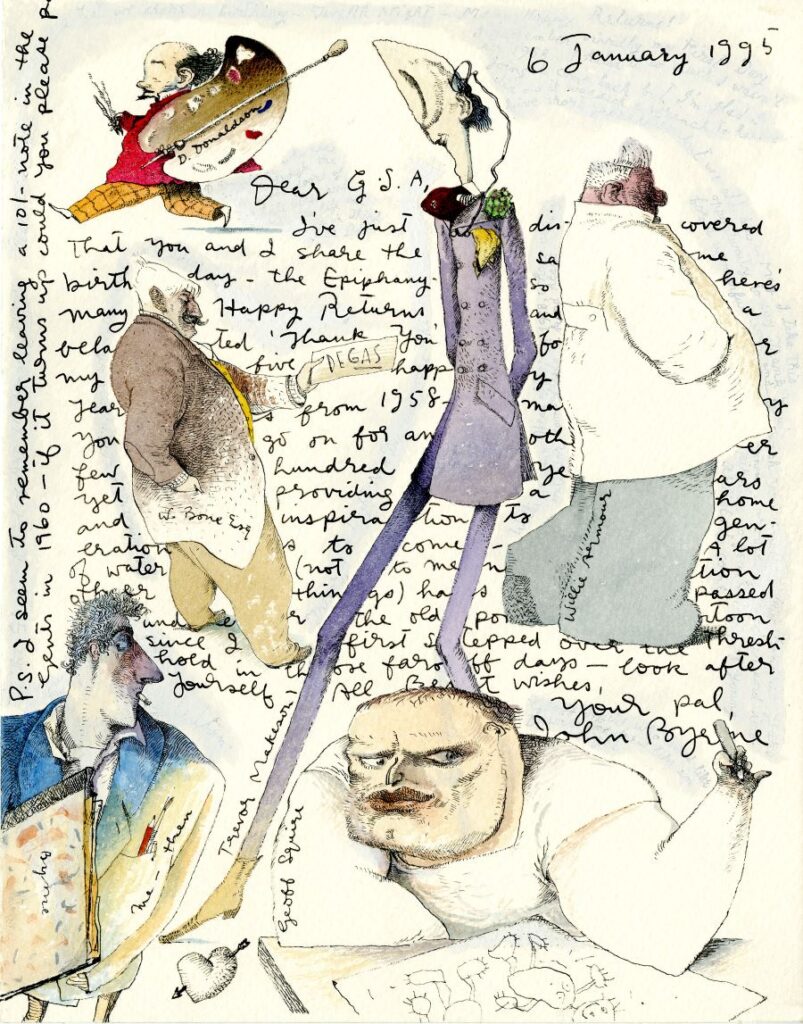 6 January 1995
D. Donaldson
Dear G.S.A,
I've just dis- covered
That you and I share the sa me
birth day - the Epiphany - so here's
many Happy Returns and a
bela ted 'Thank You' fo r
my five happ y
year s from 1958 - ma y
you go on for an oth er
few hundred ye ars
yet providing a home
and inspira tion to gen-
eration s to come - A lot
of water (not to me n tion
other things) has passed
unde r the old toon
since I first s tepped over the Thresh-
hold in those faroff days - look after
yourself, All Be st wishes,
Your pal,
John Byrne
P.S. I seem to remember leaving a 10/- note in the
gents in 1960 - if it turns up could you please
DEGAS
W. Bone Esq
Willie Armour
Trevor Makeson
Geoff Squire
me - then
Byrne